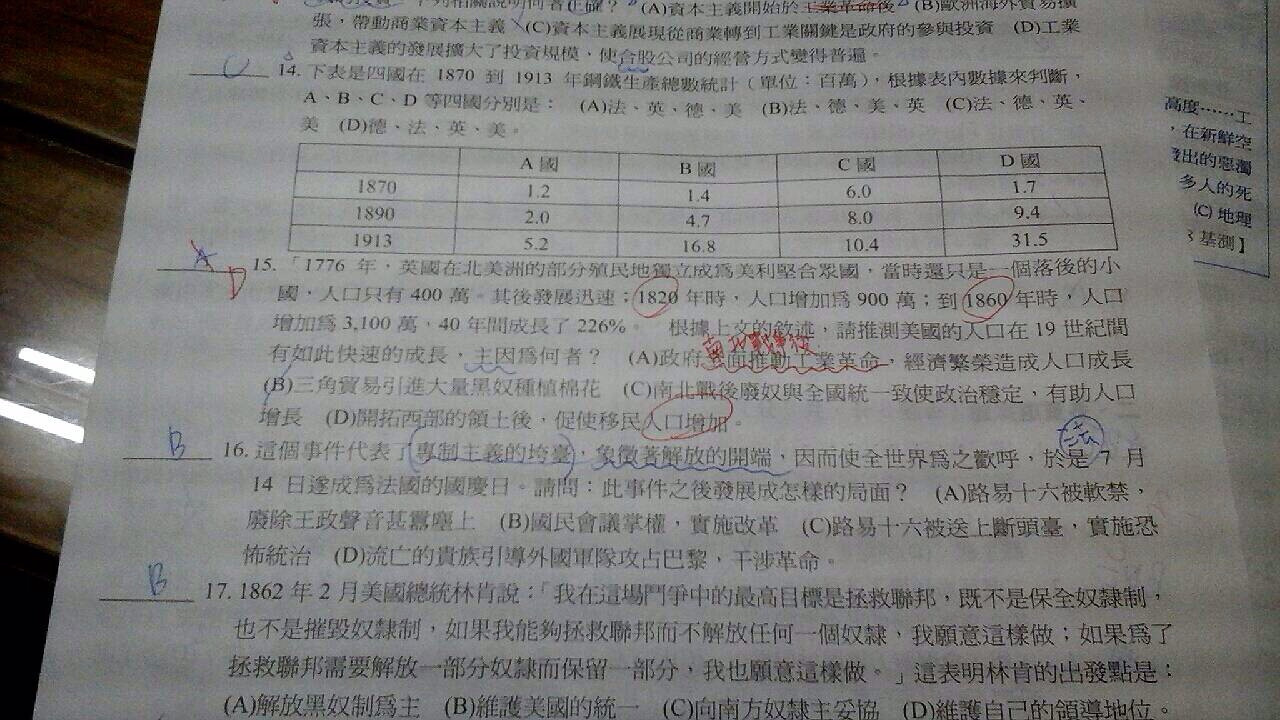 下列相關說明何者正確？ (A)資本主義開始於工業革命後 (B)歐洲海外貿易擴
張，帶動商業資本主義 (C)資本主義展現從商業轉到工業關鍵是政府的參與投資 (D)工業
資本主義的發展擴大了投資規模，使合股公司的經營方式變得普遍。
C 14. 下表是四國在 1870 到 1913 年鋼鐵生產總數統計（單位：百萬），根據表內數據來判斷，
A、B、C、D 等四國分別是： (A)法、英、德、美 (B)法、德、美、英 (C)法、德、英、
美 (D)德、法、英、美。
A國 B國 C國 D國
1870 1.2 1.4 6.0 1.7
1890 2.0 4.7 8.0 9.4
1913 5.2 16.8 10.4 31.5
A D 15. 「1776 年，英國在北美洲的部分殖民地獨立成為美利堅合眾國，當時還只是一個落後的小
國，人口只有 400 萬。其後發展迅速；1820 年時，人口增加為 900 萬；到 1860 年時，人口
增加為 3,100 萬，40 年間成長了 226%。 根據上文的敘述，請推測美國的人口在 19 世紀間
南北戰爭後
有如此快速的成長，主因為何者？ (A)政府全面推動工業革命，經濟繁榮造成人口成長
(B)三角貿易引進大量黑奴種植棉花 (C)南北戰後廢奴與全國統一致使政治穩定，有助人口
增長 (D)開拓西部的領土後，促使移民人口增加。
法
B 16. 這個事件代表了專制主義的垮臺，象徵著解放的開端，因而使全世界為之歡呼，於是 7 月
14 日遂成為法國的國慶日。請問：此事件之後發展成怎樣的局面？ (A)路易十六被軟禁，
廢除王政聲音甚囂塵上 (B)國民會議掌權，實施改革 (C)路易十六被送上斷頭臺，實施恐
怖統治 (D)流亡的貴族引導外國軍隊攻占巴黎，干涉革命。
B 17. 1862 年 2 月美國總統林肯說：「我在這場鬥爭中的最高目標是拯救聯邦，既不是保全奴隸制，
也不是摧毀奴隸制，如果我能夠拯救聯邦而不解放任何一個奴隸，我願意這樣做；如果為了
拯救聯邦需要解放一部分奴隸而保留一部分，我也願意這樣做。」這表明林肯的出發點是：
(A)解放黑奴制為主 (B)維護美國的統一 (C)向南方奴隸主妥協 (D)維護自己的領導地位。
高度……工
，在新鮮空
發出的惡濁
多人的死
(C) 地理
基測】